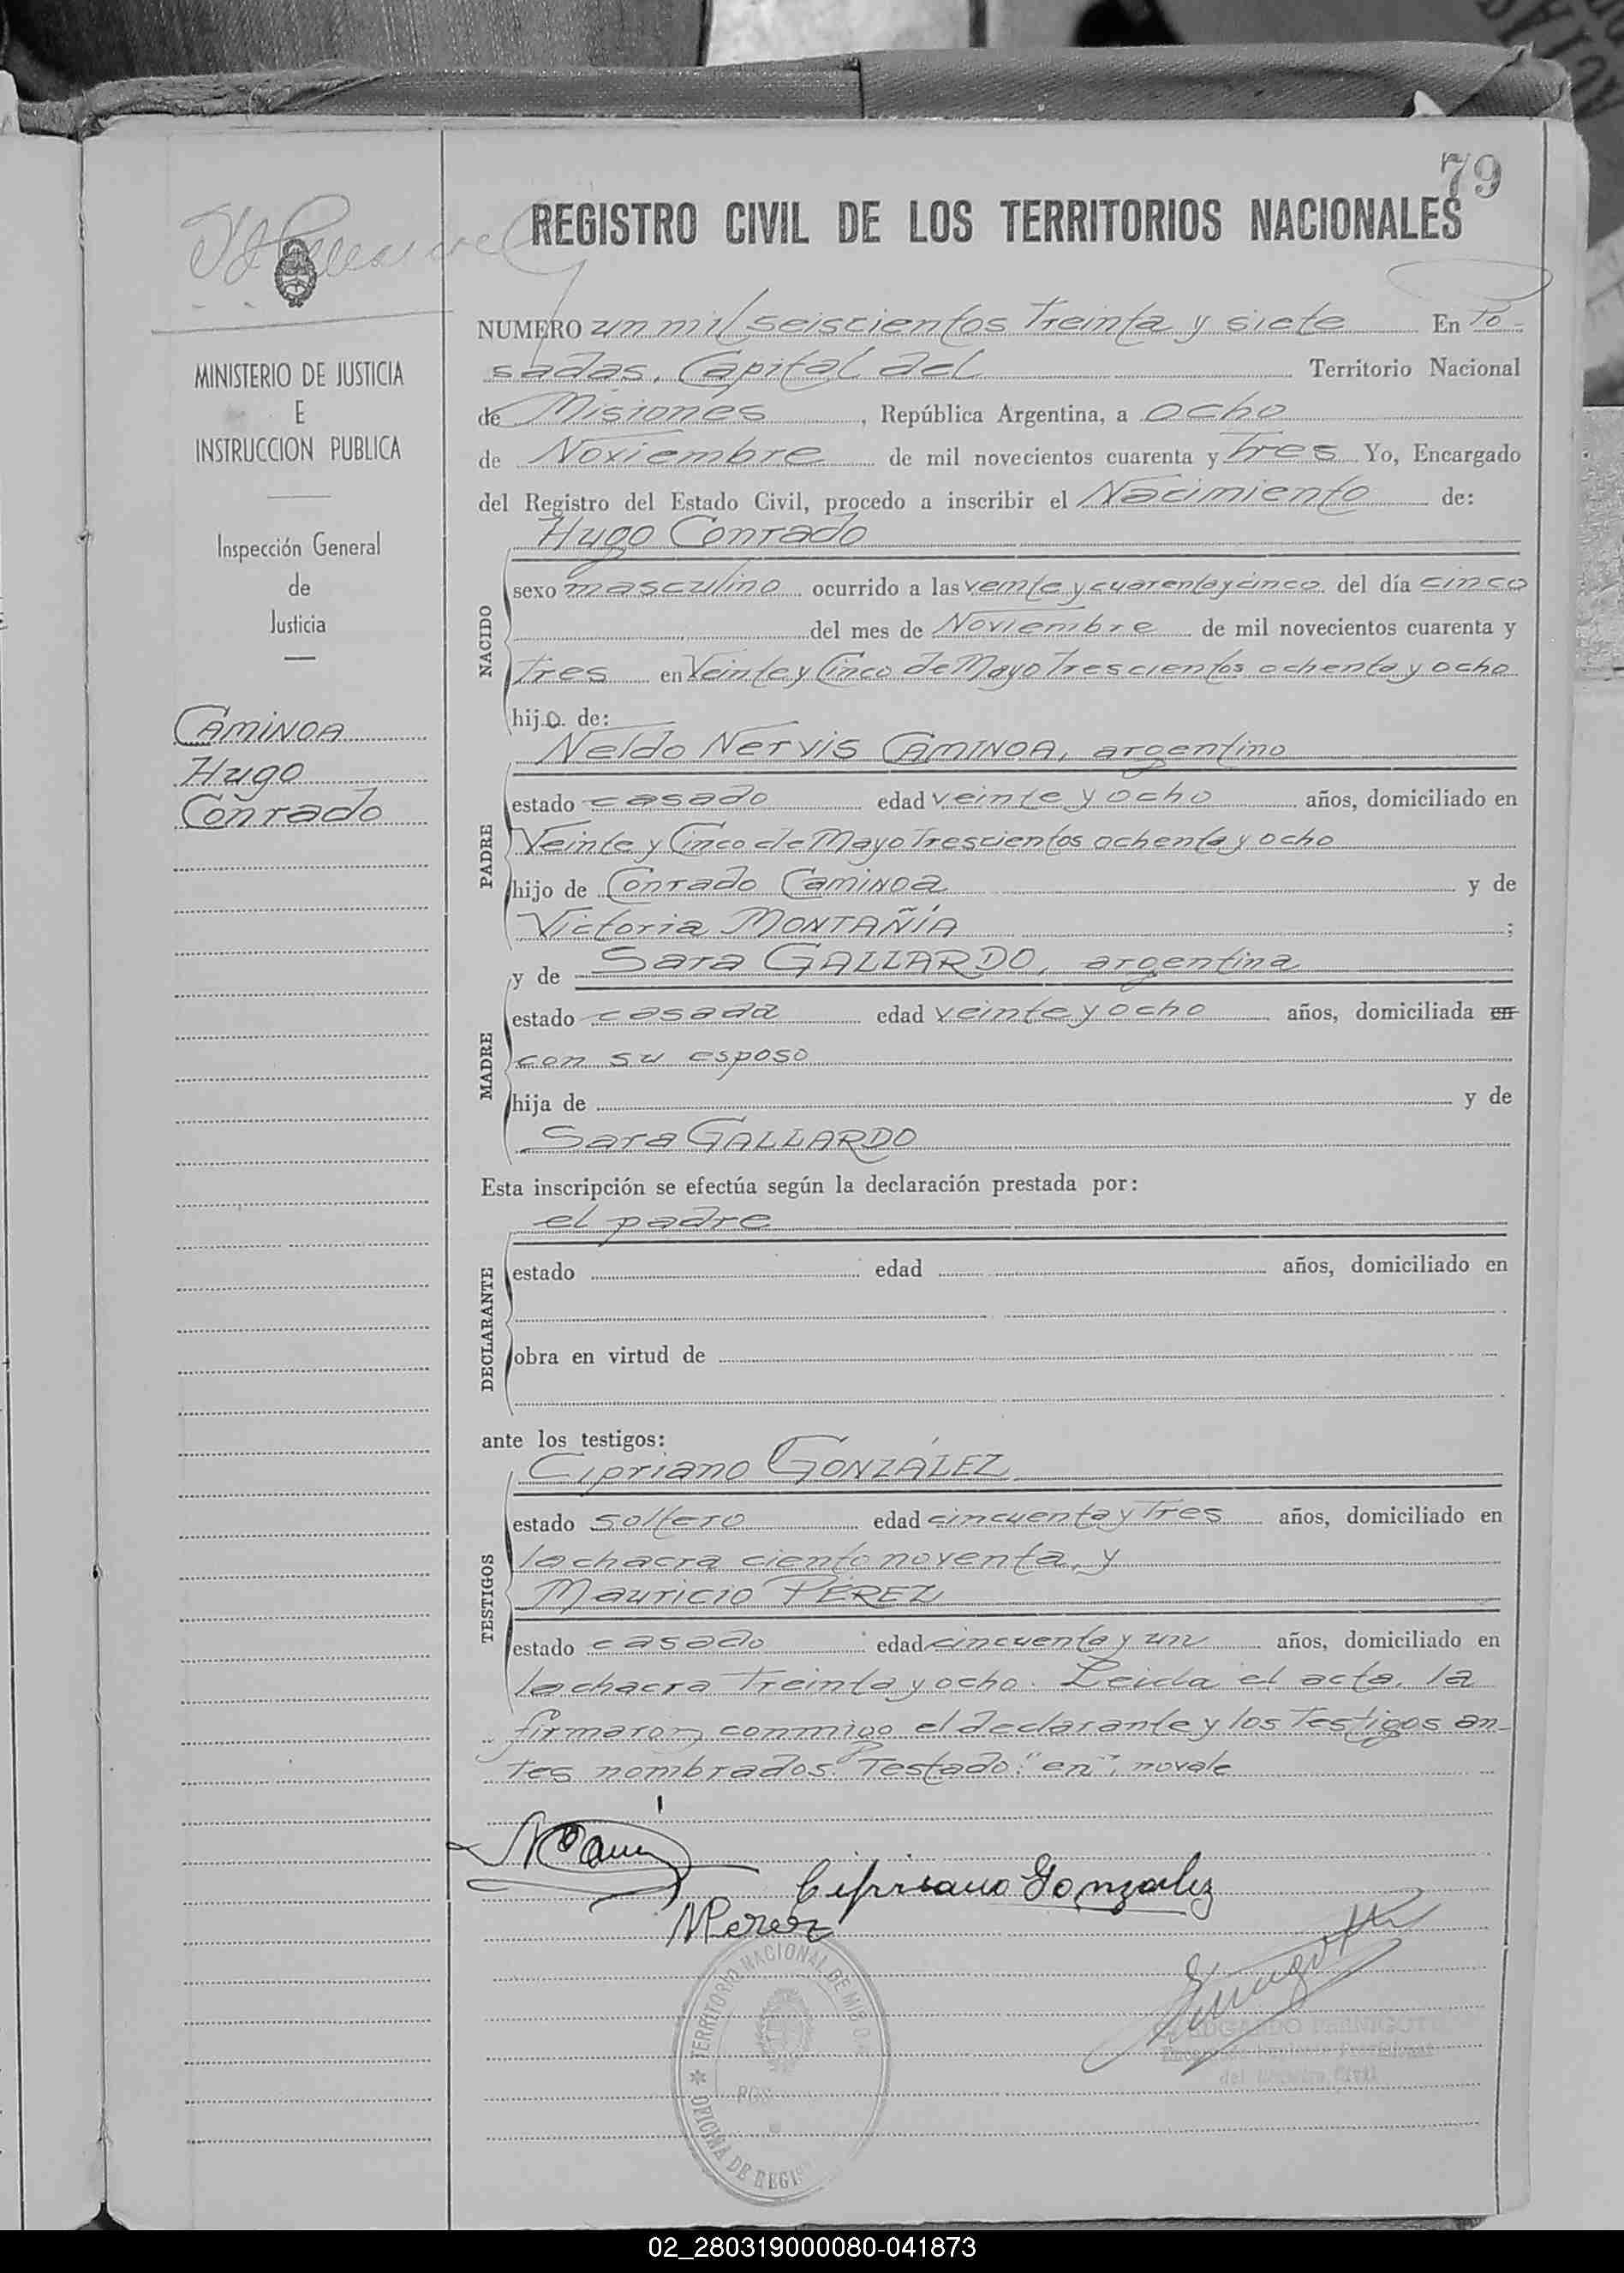 79
REGISTRO CIVIL DE LOS TERRITORIOS NACIONALES
MINISTERIO DE JUSTICIA
E
INSTRUCCION PUBLICA
Inspección General
de
Justicia
CAMINOA
Hugo
Conrado
NUMERO un mil seiscientos treinta y siete En Po-
sadas, Capital del Territorio Nacional
de Misiones, República Argentina, a ocho
de Noviembre de mil novecientos cuarenta y tres Yo, Encargado
del Registro del Estado Civil, procedo a inscribir el Nacimiento de:
Hugo Conrado
NACIDO
sexo masculino ocurrido a las veinte y cuarenta y cinco del día cinco
del mes de Noviembre de mil novecientos cuarenta y
tres en Veinte y Cinco de Mayo trescientos ochenta y ocho
hijo de:
Neldo Nervis CAMINOA, argentino
PADRE
estado casado edad veinte y ocho años, domiciliado en
Veinte y Cinco de Mayo trescientos ochenta y ocho
hijo de Conrado Caminoa y de
Victoria MONTAÑÍA ;
y de Sara GALLARDO, argentina
MADRE
estado casada edad veinte y ocho años, domiciliada en
con su esposo
hija de y de
Sara GALLARDO
Esta inscripción se efectúa según la declaración prestada por:
el padre
DECLARANTE
estado edad años, domiciliado en
obra en virtud de
ante los testigos:
Cipriano GONZÁLEZ
TESTIGOS
estado soltero edad cincuenta y tres años, domiciliado en
la chacra ciento noventa, y
Mauricio PÉREZ
estado casado edad cincuenta y un años, domiciliado en
la chacra treinta y ocho. Leida el acta, la
firmaron conmigo el declarante y los testigos an-
tes nombrados. Testado: "en", no vale
Cipriano Gonzalez
MPerez
TERRITORIO NACIONAL DE MISIO
OFICINA DE REGIS
EDGARDO
del Registro Civil
02_280319000080-041873